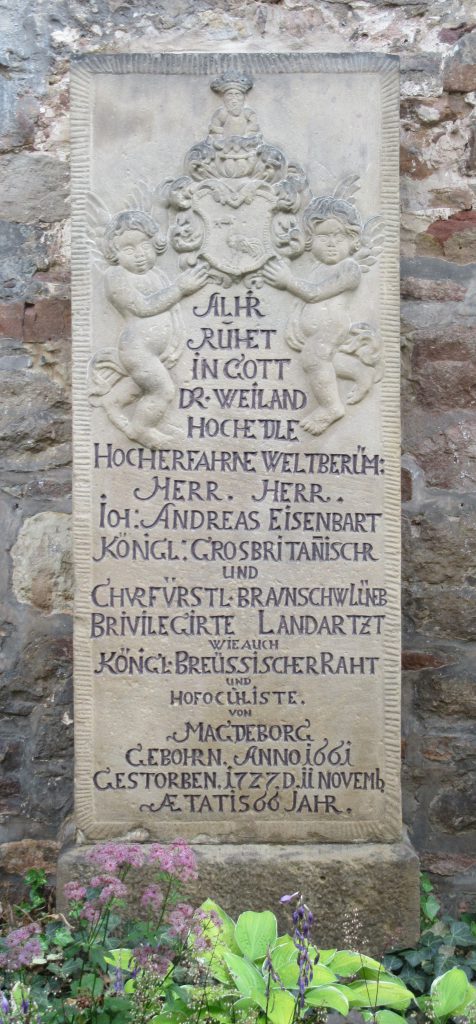 ALHR
RUHET
IN GOTT
DR. WEILAND
HOCHEDLE
HOCHERFAHRNE WELTBERÜM:
HERR. HERR.
IOH: ANDREAS EISENBART
KÖNIGL: GROSBRITAN̄ISCHR
UND
CHVRFÜRSTL. BRAVNSCHWLÜNEB
BRIVILEGIRTE LANDARTZT
WIE AUCH
KÖNIGL. BREÜSSISCHER RAHT
UND
HOFOCULISTE.
VON
MAGDEBORG
GEBOHRN. ANNO 1661
GESTORBEN. 1727. D. 11 NOVEMB,
ÆTATIS 66 JAHR.